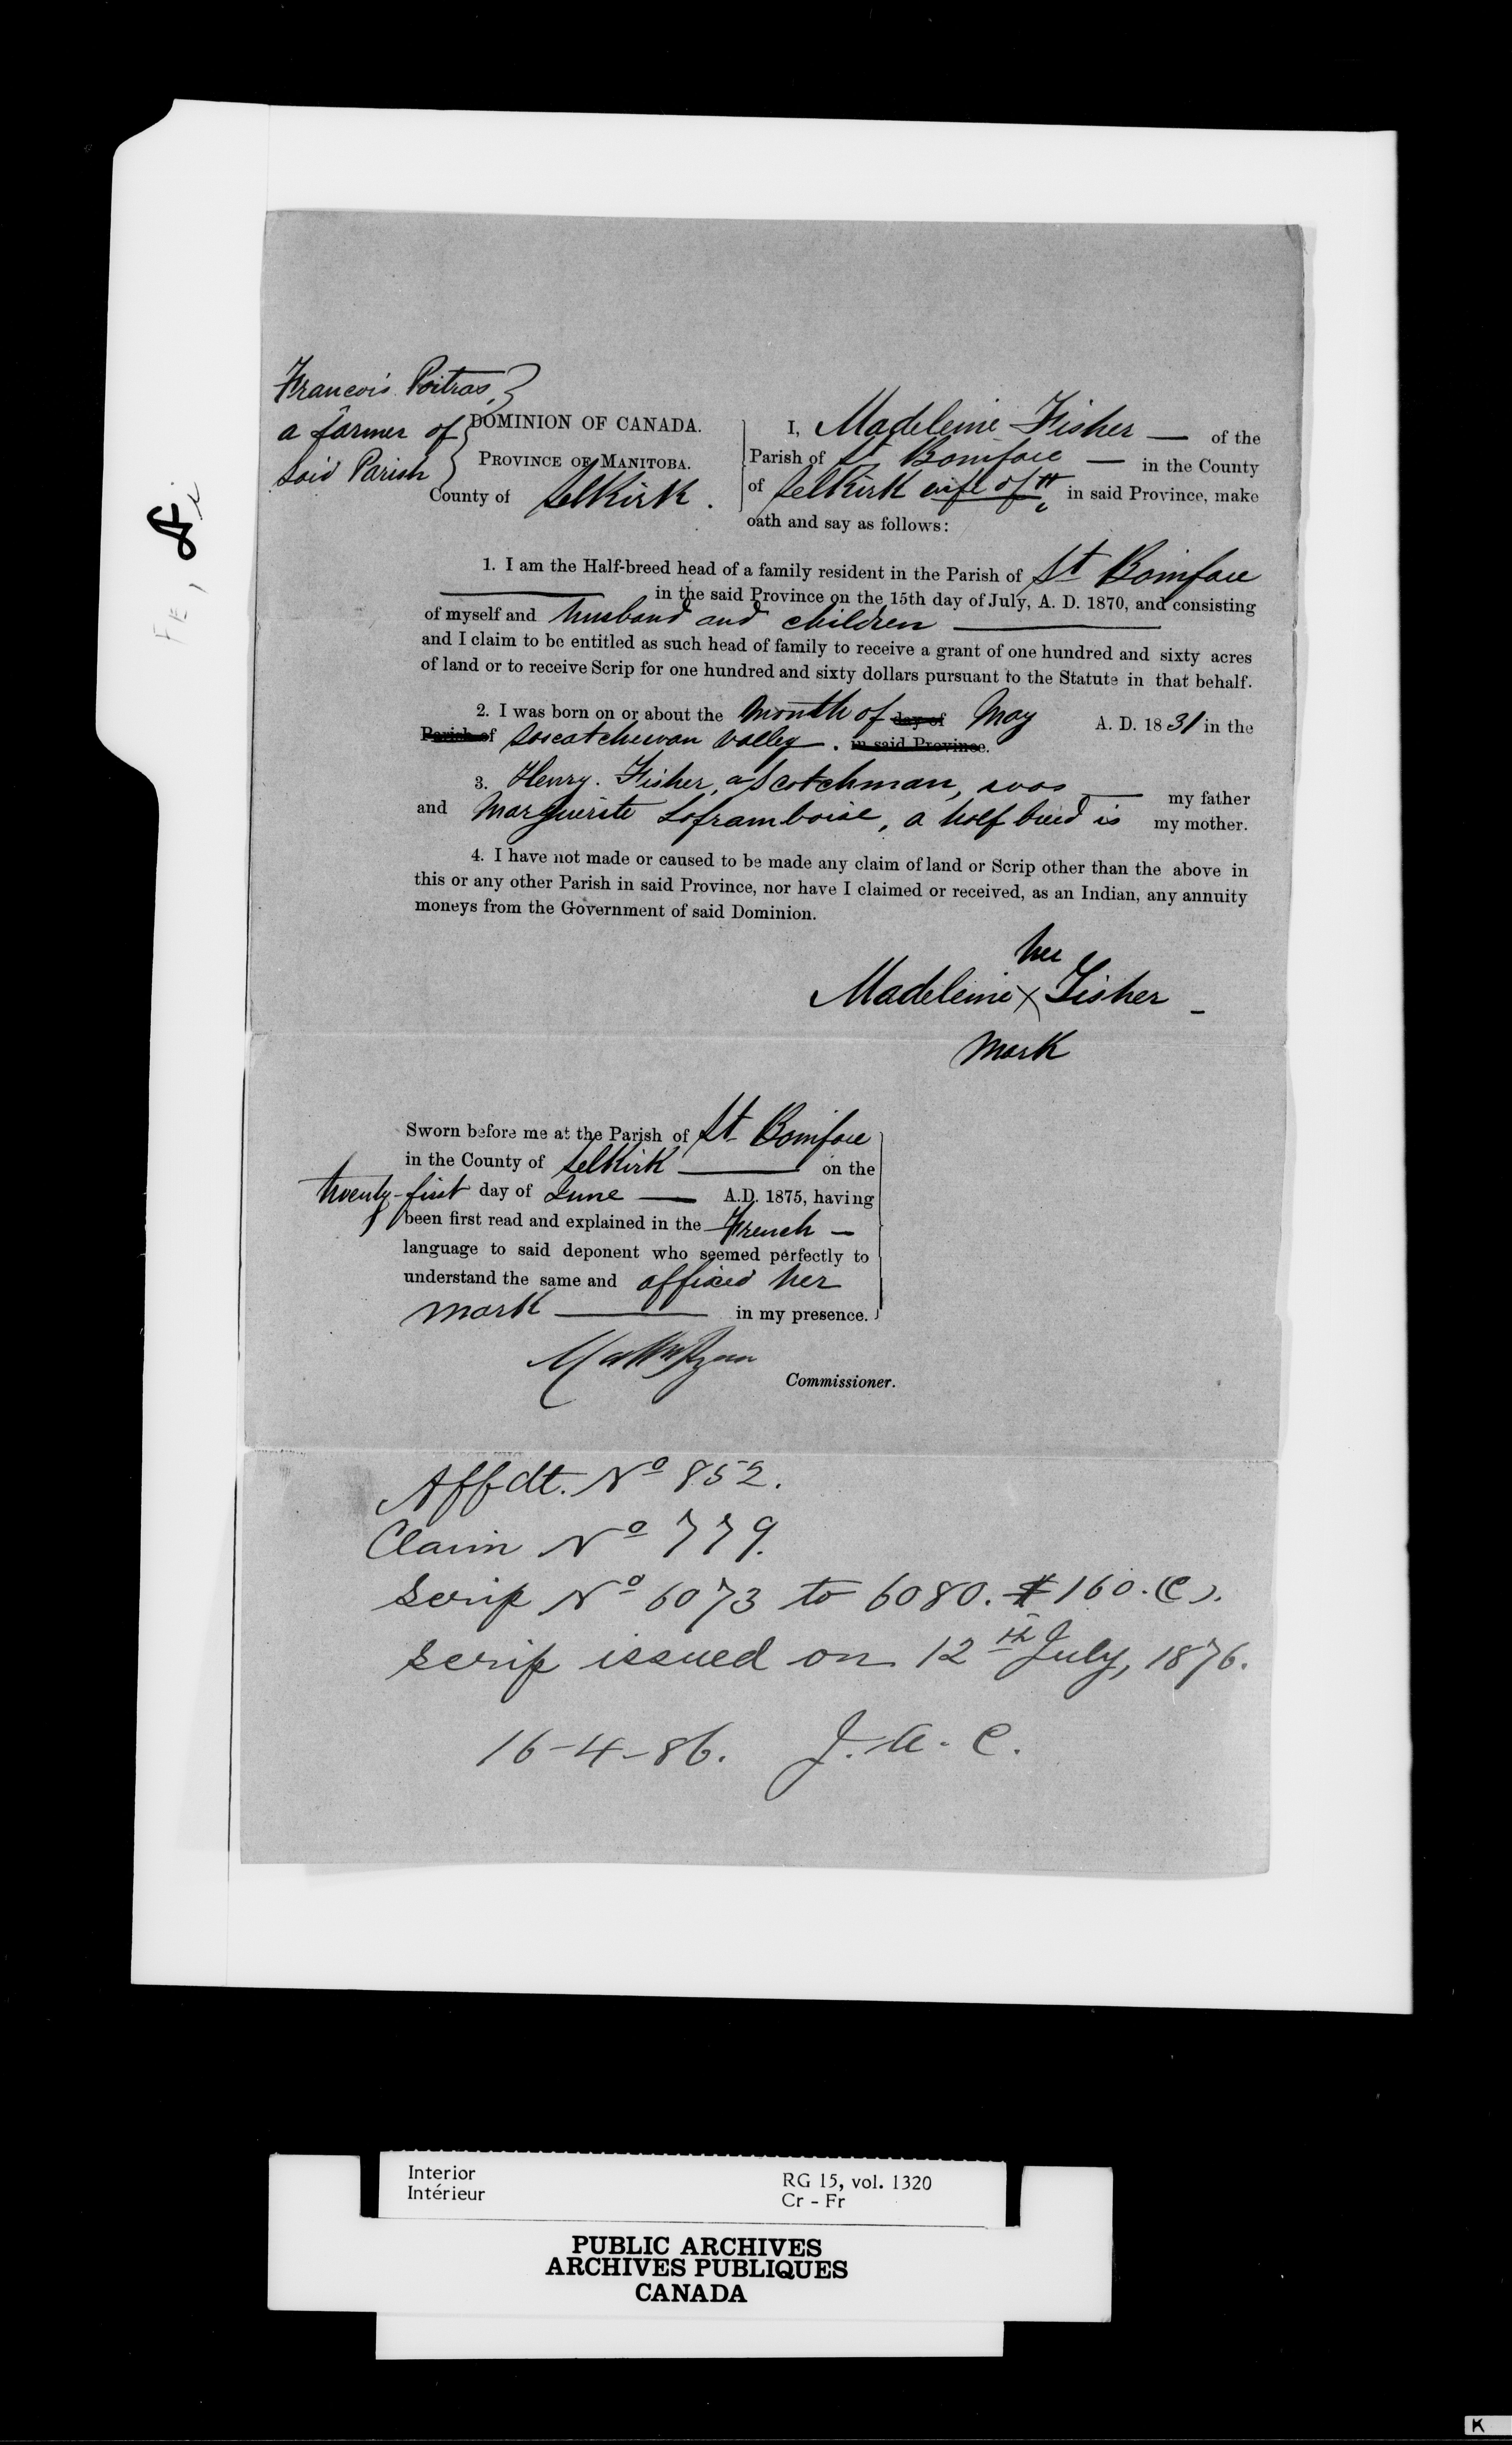 Francois Poitras,
a farmer of
said Parish
DOMINION OF CANADA.
PROVINCE OF MANITOBA.
County of Selkirk.
I, Madeleine Fisher — of the
Parish of St Boniface — in the County
of Selkirk wife of in said Province, make
oath and say as follows:
1. I am the Half-breed head of a family resident in the Parish of St Boniface
in the said Province on the 15th day of July, A. D. 1870, and consisting
of myself and husband and children
and I claim to be entitled as such head of family to receive a grant of one hundred and sixty acres
of land or to receive Scrip for one hundred and sixty dollars pursuant to the Statute in that behalf.
2. I was born on or about the month of day of May A. D. 1831 in the
Parish of Sascatchewan Valley. in said Province.
3. Henry. Fisher, a Scotchman, was — my father
and Marguerite Laframboise, a half breed is my mother.
4. I have not made or caused to be made any claim of land or Scrip other than the above in
this or any other Parish in said Province, nor have I claimed or received, as an Indian, any annuity
moneys from the Government of said Dominion.
her
Madeleine X Fisher
mark
Sworn before me at the Parish of St Boniface
in the County of Selkirk — on the
twenty-first day of June — A.D. 1875, having
been first read and explained in the French —
language to said deponent who seemed perfectly to
understand the same and affixed her
mark — in my presence.
Commissioner.
Affdt. No 852.
Claim No 779.
Scrip No 6073 to 6080. $160.(C).
Scrip issued on 12th July, 1876.
16-4-86. J. A. C.
Interior
Intérieur
RG 15, vol. 1320
Cr - Fr
PUBLIC ARCHIVES
ARCHIVES PUBLIQUES
CANADA
K